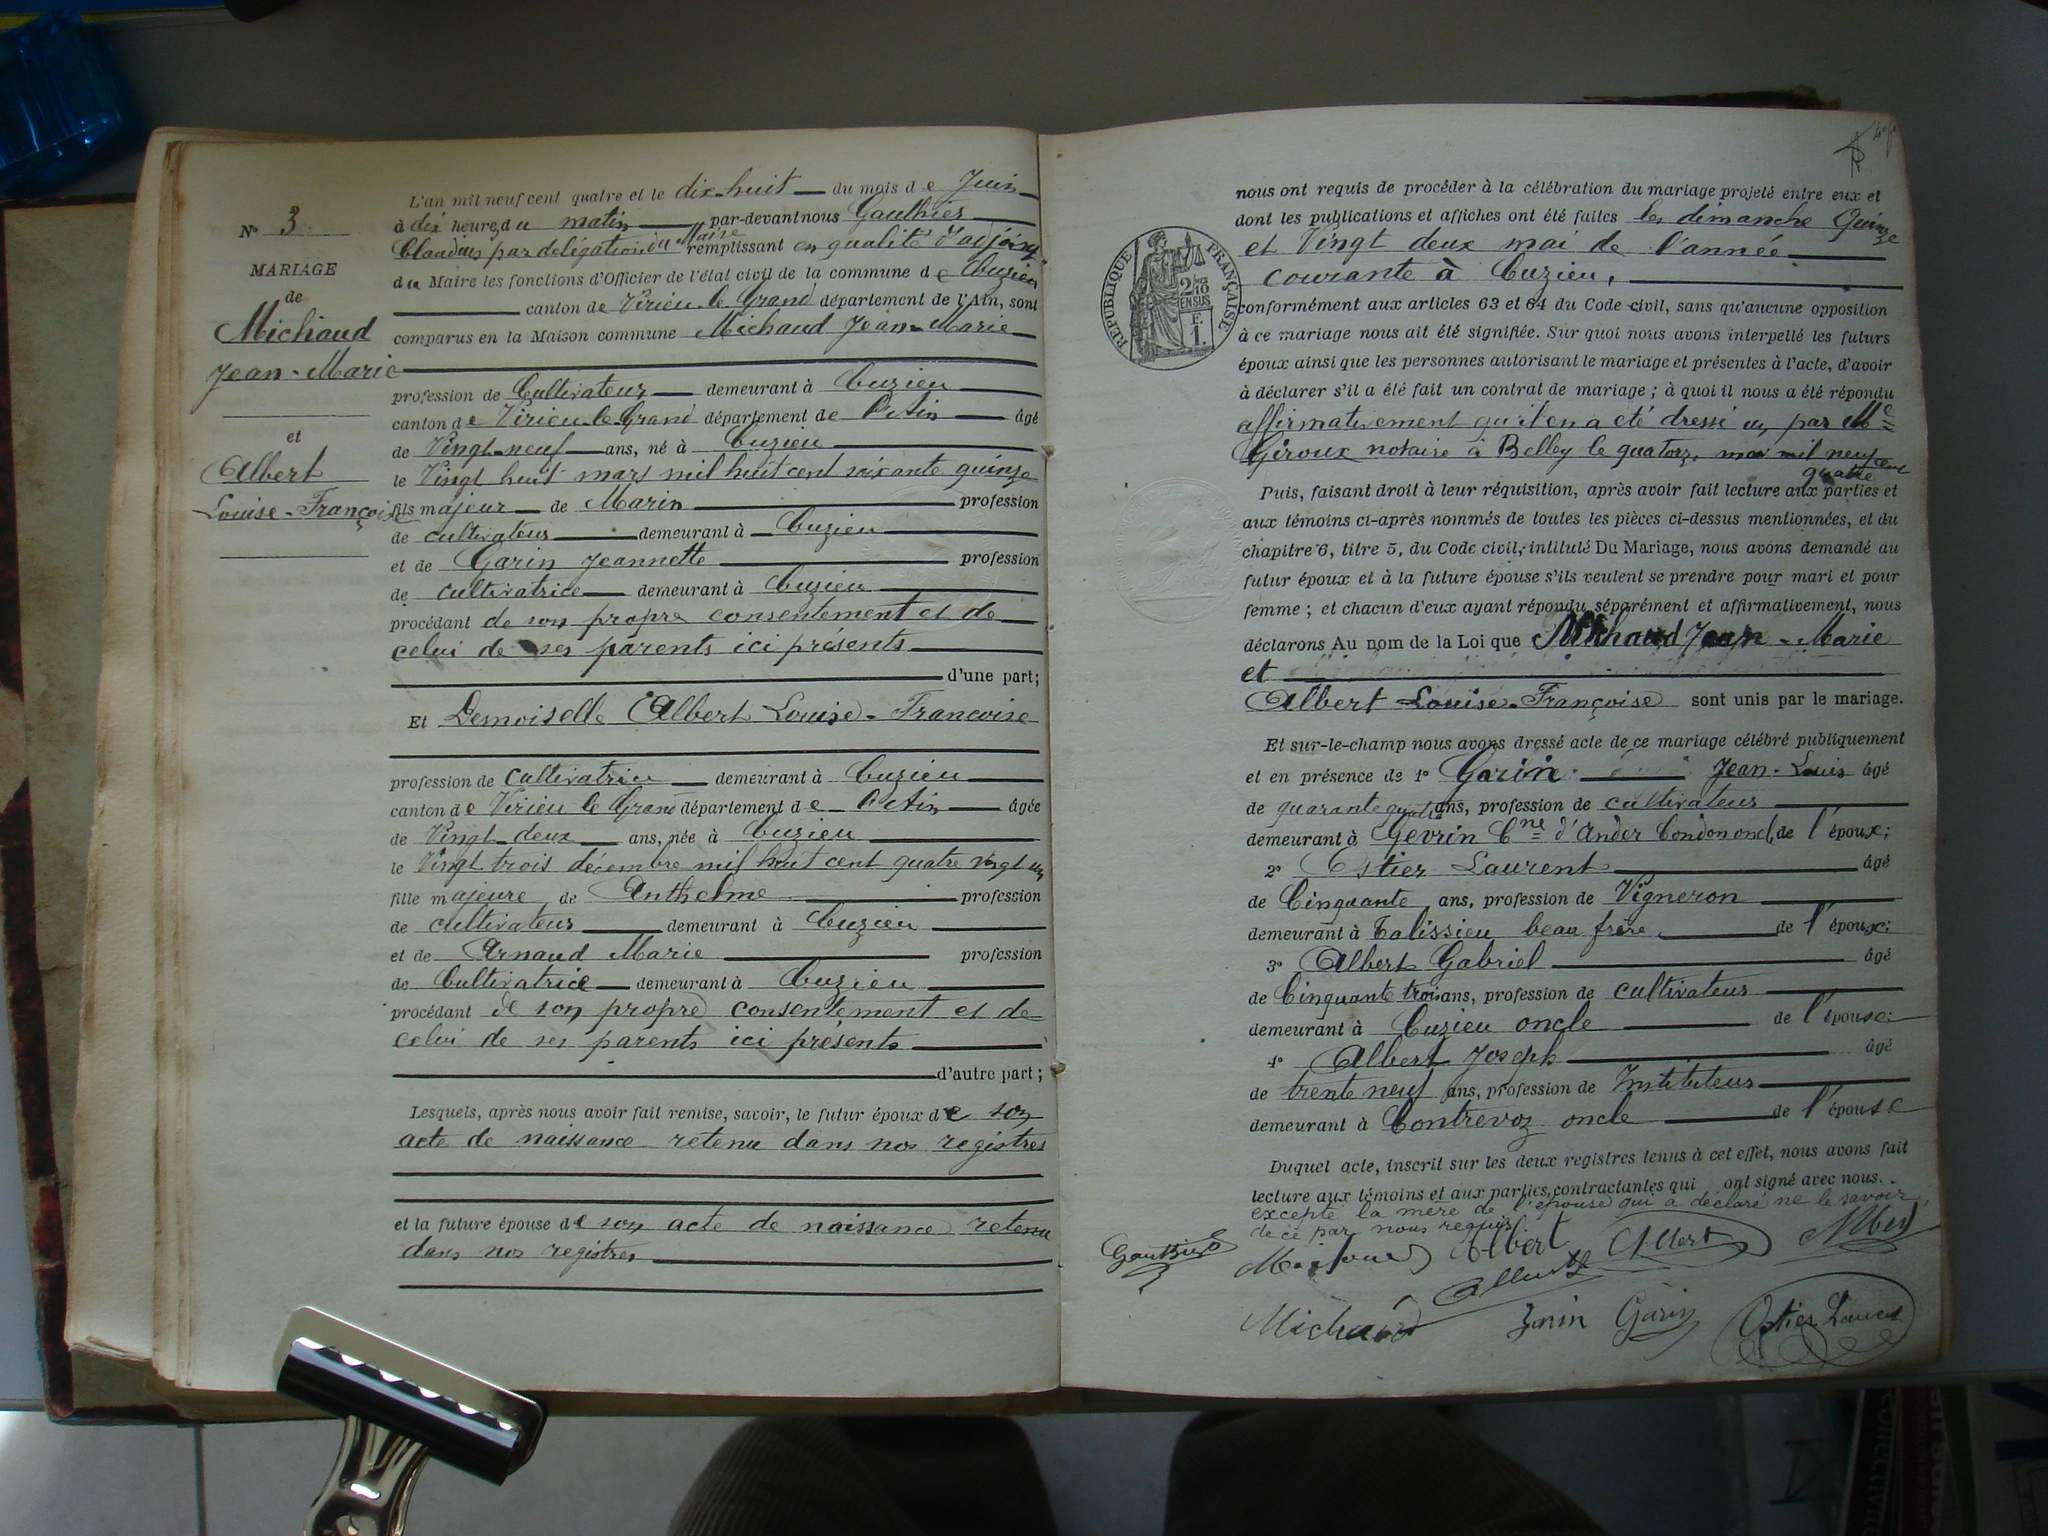 N° 3
MARIAGE
de
Michaud
Jean-Marie
et
Albert
Louise-Françoise
L'an mil neuf cent quatre et le dix huit du mois de Juin
à dix heures du matin par-devant nous Gauthier
Claudius par délégation du Maire remplissant en qualité d'adjoint
du Maire les fonctions d'Officier de l'état civil de la commune de Cuzieu
canton de Virieu le Grand département de l'Ain, sont
comparus en la Maison commune Michaud Jean-Marie
profession de Cultivateur demeurant à Cuzieu
canton de Virieu-le-Grand département de l'Ain âgé
de Vingt-neuf ans, né à Cuzieu
le Vingt huit mars mil huit cent soixante quinze
fils majeur de Marin profession
de cultivateur demeurant à Cuzieu
et de Garin Jeannette profession
de cultivatrice demeurant à Cuzieu
procédant de son propre consentement et de
celui de ses parents ici présents
d'une part;
Et Demoiselle Albert Louise-Francoise
profession de cultivatrice demeurant à Cuzieu
canton de Virieu le Grand département de l'Ain âgée
de Vingt-deux ans, née à Cuzieu
le Vingt trois décembre mil huit cent quatre vingt un
fille majeure de Anthelme profession
de cultivateur demeurant à Cuzieu
et de Arnaud Marie profession
de Cultivatrice demeurant à Cuzieu
procédant de son propre consentement et de
celui de ses parents ici présents
d'autre part;
Lesquels, après nous avoir fait remise, savoir, le futur époux de son
acte de naissance retenu dans nos registres
et la future épouse de son acte de naissance retenu
dans nos registres
REPUBLIQUE FRANÇAISE
nous ont requis de procéder à la célébration du mariage projeté entre eux et
dont les publications et affiches ont été faites les dimanche Quinze
et Vingt deux mai de l'année
courante à Cuzieu,
conformément aux articles 63 et 64 du Code civil, sans qu'aucune opposition
à ce mariage nous ait été signifiée. Sur quoi nous avons interpellé les futurs
époux ainsi que les personnes autorisant le mariage et présentes à l'acte, d'avoir
à déclarer s'il a été fait un contrat de mariage; à quoi il nous a été répondu
affirmativement qu'il en a été dressé un par Me
Giroux notaire à Belley le quatorze mai mil neuf cent
quatre
Puis, faisant droit à leur réquisition, après avoir fait lecture aux parties et
aux témoins ci-après nommés de toutes les pièces ci-dessus mentionnées, et du
chapitre 6, titre 5, du Code civil, intitulé Du Mariage, nous avons demandé au
futur époux et à la future épouse s'ils veulent se prendre pour mari et pour
femme; et chacun d'eux ayant répondu séparément et affirmativement, nous
déclarons Au nom de la Loi que Michaud Jean-Marie
et
Albert Louise-Françoise sont unis par le mariage.
Et sur-le-champ nous avons dressé acte de ce mariage célébré publiquement
et en présence de 1° Garin Jean-Louis âgé
de quarante quatre ans, profession de cultivateur
demeurant à Gevrin Cne d'Ander Condon oncle de l'époux;
2° Estier Laurent âgé
de Cinquante ans, profession de Vigneron
demeurant à Talissieu beau frère de l'époux;
3° Albert Gabriel âgé
de Cinquante trois ans, profession de cultivateur
demeurant à Cuzieu oncle de l'épouse;
4° Albert Joseph âgé
de trente neuf ans, profession de Instituteur
demeurant à Contrevoz oncle de l'épouse
Duquel acte, inscrit sur les deux registres tenus à cet effet, nous avons fait
lecture aux témoins et aux parties contractantes qui ont signé avec nous.
excepté la mère de l'épouse qui a déclaré ne le savoir
de ce par nous requis
Gauthier Michaud Albert Albert Albert
Albert
Michaud Garin Ostier Laurent